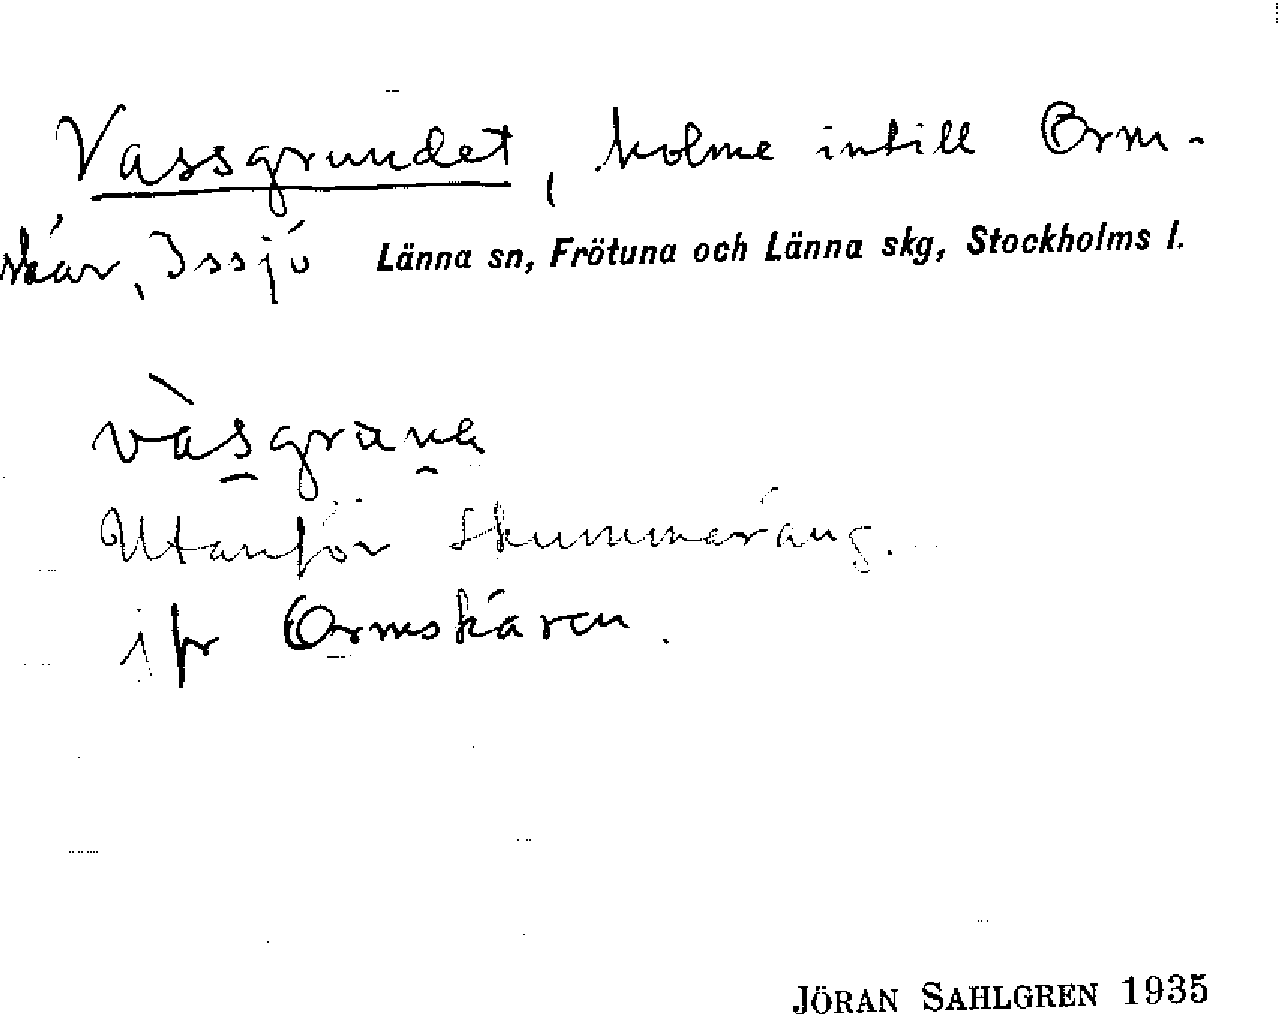 Vassgrundet, holme intill Orm-
skär, Issjö Länna sn, Frötuna och Länna skg, Stockholms l.
vàsgrʉnə
Utanför Skummeräng.
jfr Ormskären.
JÖRAN SAHLGREN 1935